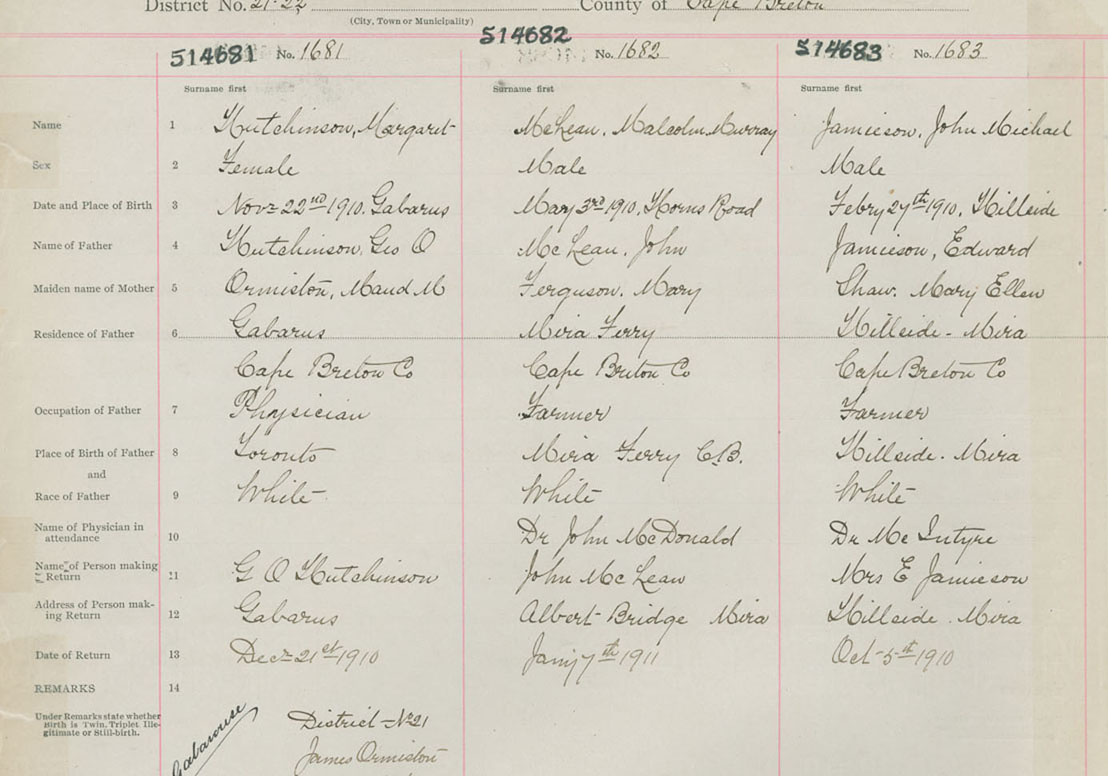 District No. 21-22 County of Cape Breton
(City, Town or Municipality)
514681 No. 1681 514682 No. 1682 514683 No. 1683
Surname first Surname first Surname first
Name 1 Hutchinson, Margaret McLean, Malcolm Murray Jamieson, John Michael
Sex 2 Female Male Male
Date and Place of Birth 3 Novr 22nd 1910, Gabarus May 3rd 1910, Horns Road Febry 27th 1910, Hillside
Name of Father 4 Hutchinson, Geo O McLean, John Jamieson, Edward
Maiden name of Mother 5 Ormiston, Maud M Ferguson, Mary Shaw, Mary Ellen
Residence of Father 6 Gabarus Mira Ferry Hillside - Mira
Cape Breton Co Cape Breton Co Cape Breton Co
Occupation of Father 7 Physician Farmer Farmer
Place of Birth of Father 8 Toronto Mira Ferry C.B. Hillside. Mira
and
Race of Father 9 White White White
Name of Physician in
attendance 10 Dr John McDonald Dr McIntyre
Name of Person making
Return 11 G O Hutchinson John McLean Mrs E Jamieson
Address of Person mak-
ing Return 12 Gabarus Albert Bridge Mira Hillside. Mira
Date of Return 13 Decr 21st 1910 Jany 7th 1911 Oct 5th 1910
REMARKS 14
Under Remarks state whether
Birth is Twin, Triplet Ille-
gitimate or Still-birth.
Gabarouse
District No 21
James Ormiston